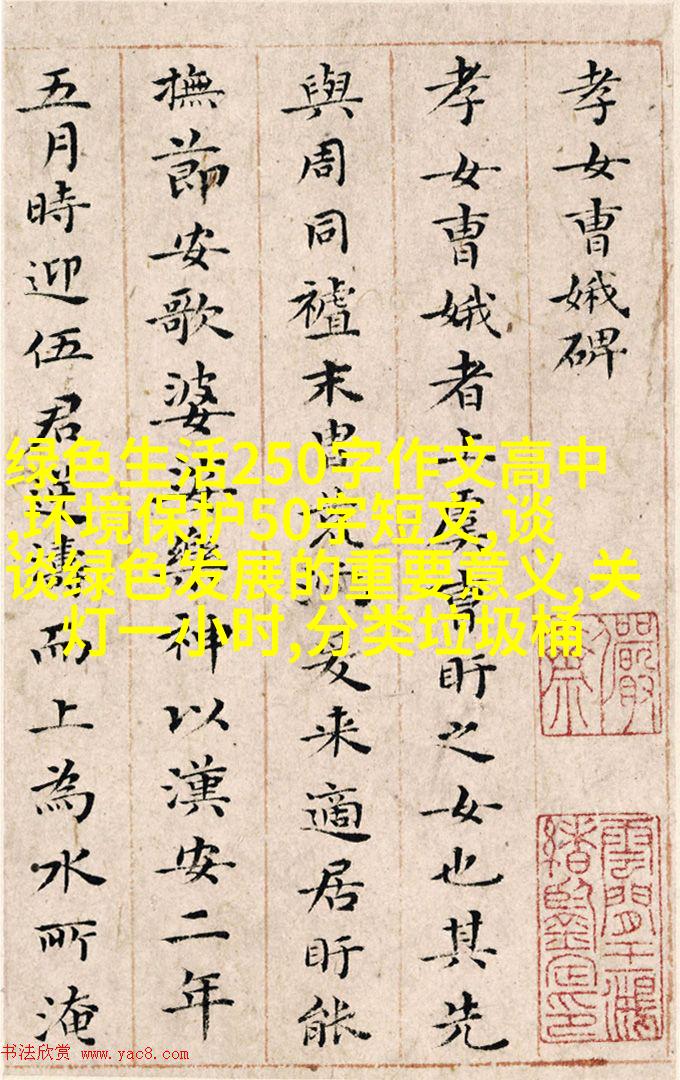 孝女曹娥碑
孝女曹娥者上虞曹盱之女也其先
與周同末胄荒爰來適居盱能
撫節安歌婆娑樂神以漢安二年
五月時迎伍君逆濤而上為水所淹
儼齋
雲間王鴻緒鑒定印
绿色生活250字作文高中
,环境保护50字短文,谈
谈绿色发展的重要意义,关
灯一小时,分类垃圾桶
书法欣赏 www.yac8.com